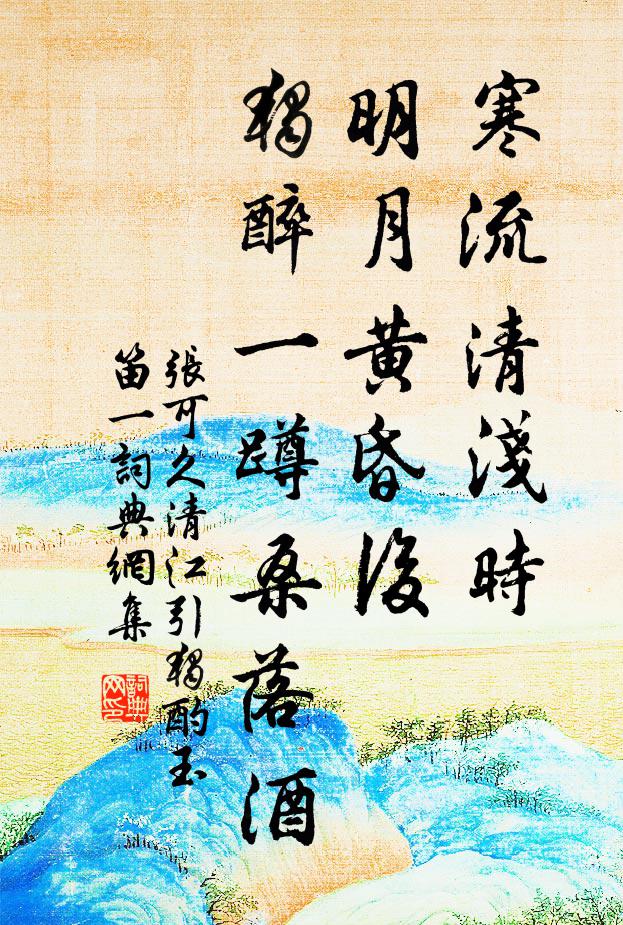 寒流清淺時
明月黄昏後
獨醉一蹲桑落酒
張可久清江引獨酌玉
笛一詞典網集
詞典
网印